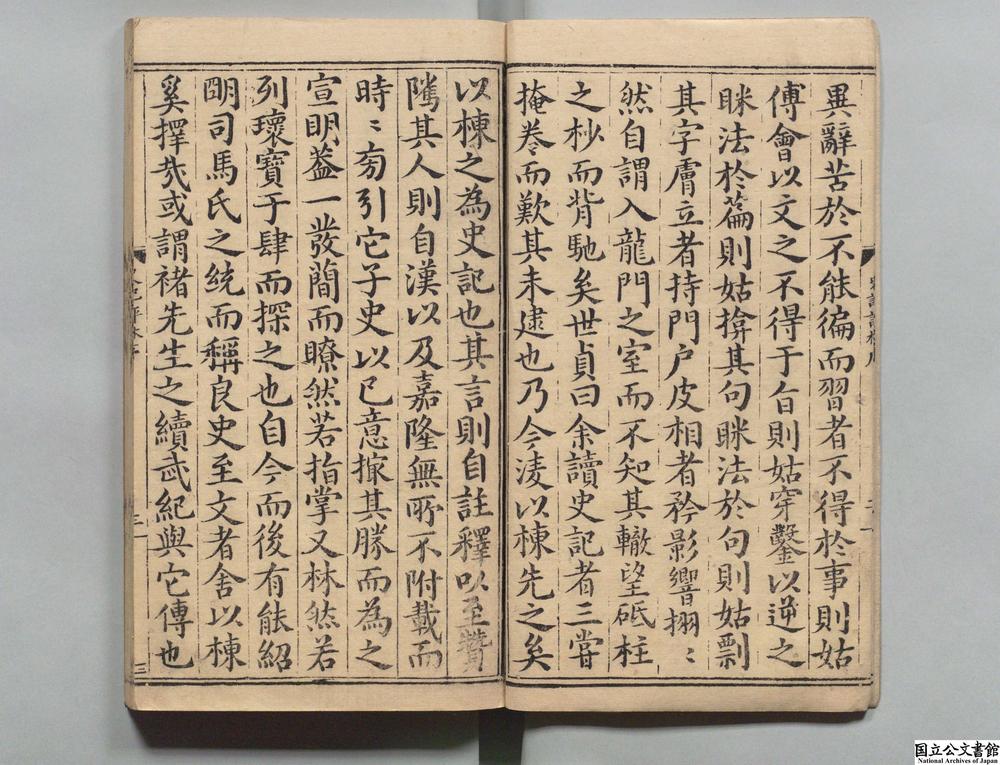 異辭苦於不能徧而習者不得於事則姑
傅會以文之不得于旨則姑穿鑿以逆之
眯法於篇則姑揜其句眯法於句則姑剽
其字膚立者持門戶皮相者矜影響栩〻
然自謂入龍門之室而不知其轍望砥柱
之杪而背馳矣世貞曰余讀史記者三嘗
掩卷而歎其未逮也乃今淩以棟先之矣
以棟之為史記也其言則自註釋以至贊
隲其人則自漢以及嘉隆無所不附載而
時〻旁引它子史以已意撮其勝而為之
宣明葢一發簡而瞭然若指掌又林然若
列瓌寶于肆而探之也自今而後有能紹
明司馬氏之統而稱良史至文者舍以棟
奚擇哉或謂禇先生之續武紀與它傳也
三
国立公文書館
National Archives of Japan